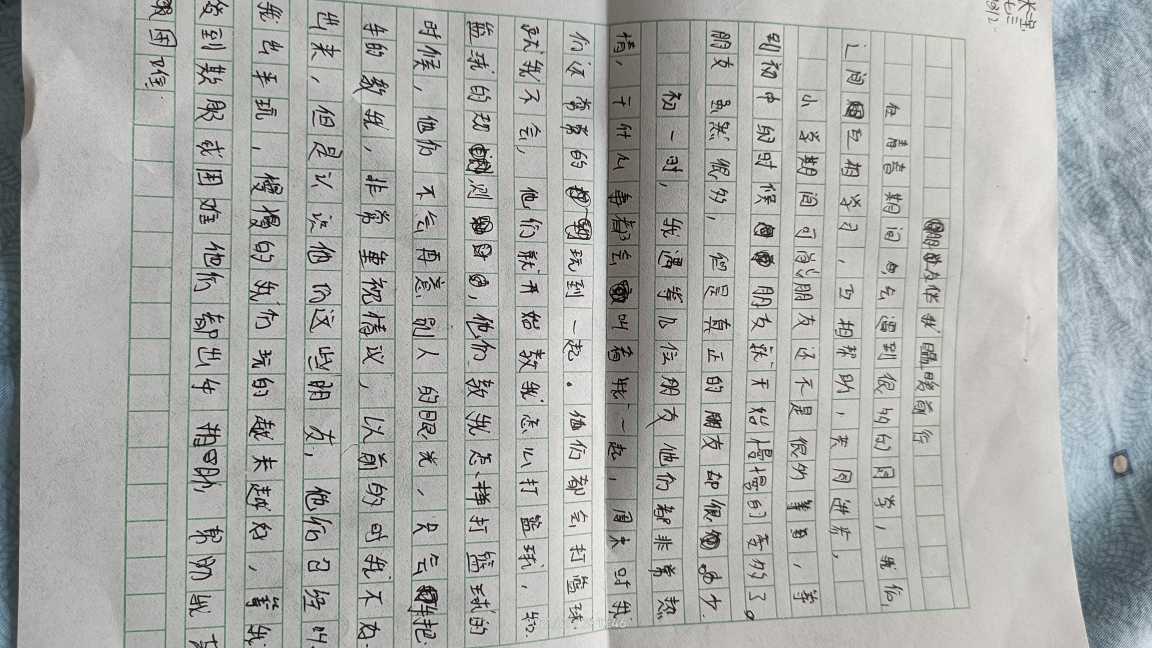 朋友伴我 前行
在青春期间 会遇到很多的同学，我们
之间 互相学习，互相帮助，共同进步，
小学期间可能朋友还不是很多 ，等
到初中的时候 朋友就开始慢慢的变多了。
朋友虽然很多，但是真正的朋友却很 少
初一时，我遇等几位朋友他们都非常热
情，干什么事都会 叫着我一起，周末时我
们还常常的 玩到一起。他们都会打篮球
就我不会，他们就开始教我怎么打篮球，
篮球的动 ，他们教我怎样打篮球的
时候，他们不会再意别人的眼光，只会 把
的教我，非常重视情议，以前的时我不
出来，但是认识他们这些朋友，他们已经叫
我出来玩，慢慢的我们玩的越来越好，等我
受到欺服或困难他们都出手相助，帮助我
困难